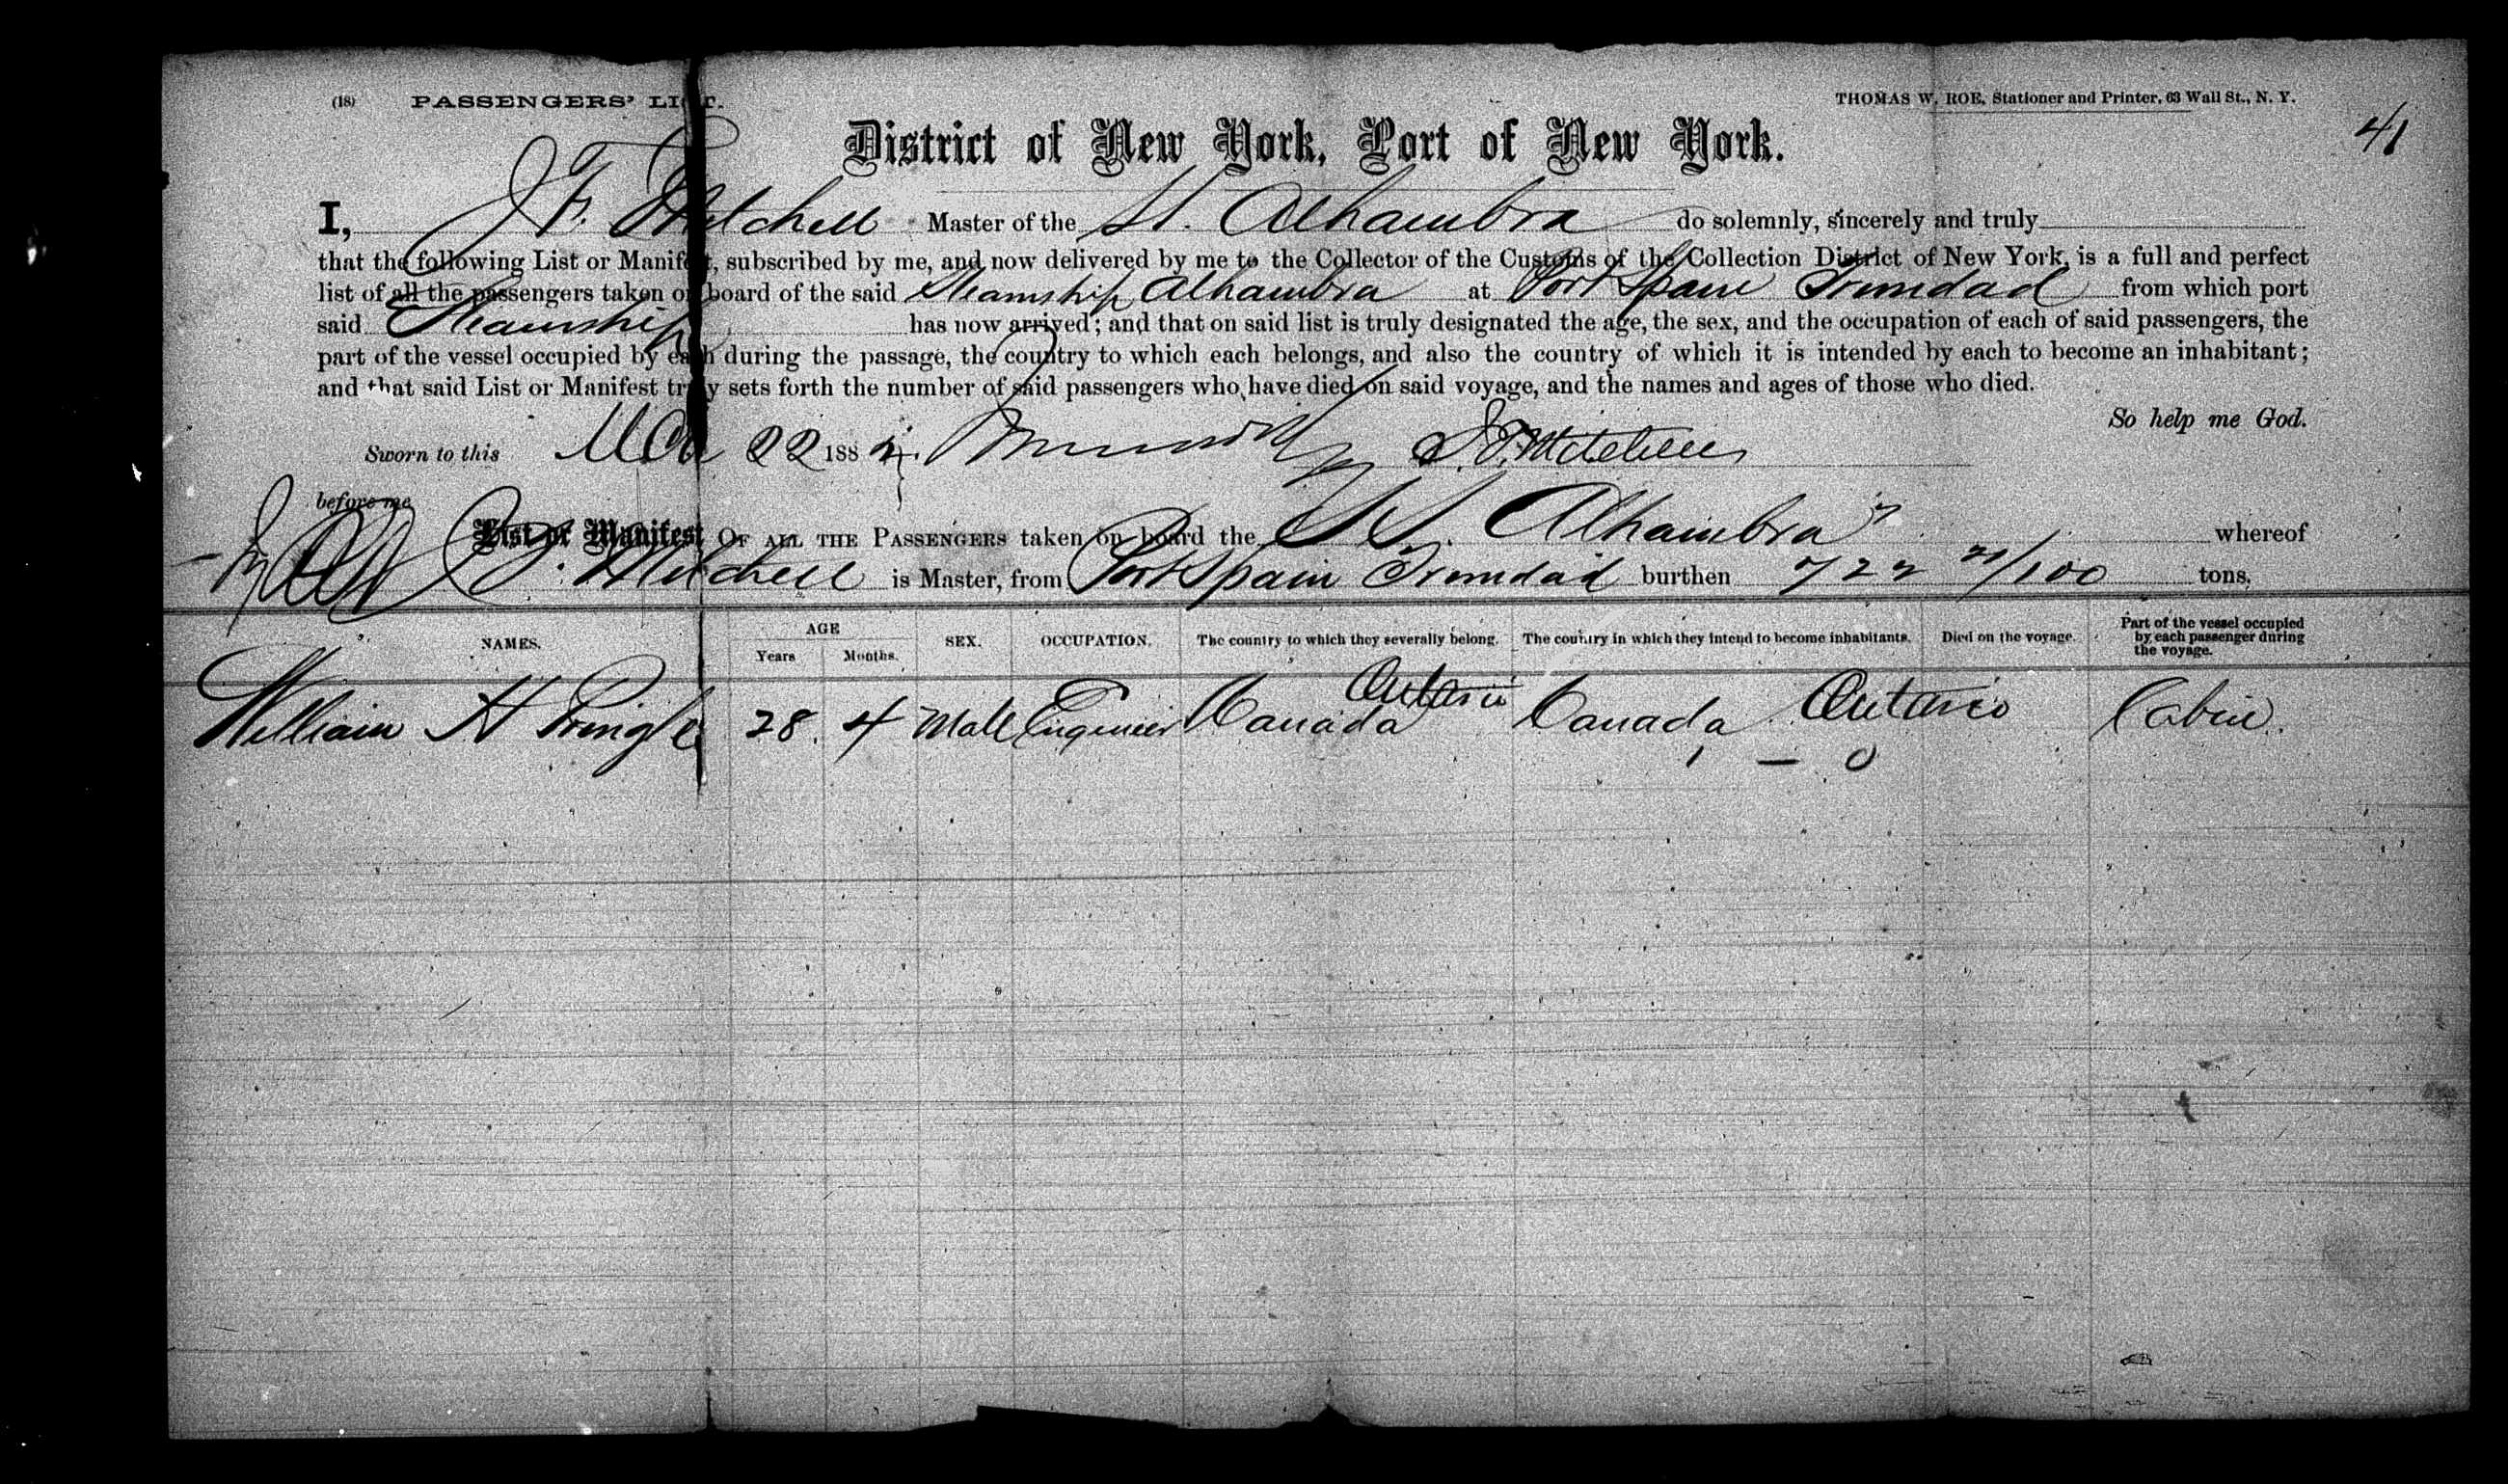 (18) PASSENGERS' LIST. THOMAS W. ROE, Stationer and Printer, 63 Wall St., N. Y.
41
District of New York, Port of New York.
I, J. F. Mitchell Master of the St. Alhambra do solemnly, sincerely and truly
that the following List or Manifest, subscribed by me, and now delivered by me to the Collector of the Customs of the Collection District of New York, is a full and perfect
list of all the passengers taken on board of the said Steamship Alhambra at Port Spain Trinidad from which port
said Steamship has now arrived; and that on said list is truly designated the age, the sex, and the occupation of each of said passengers, the
part of the vessel occupied by each during the passage, the country to which each belongs, and also the country of which it is intended by each to become an inhabitant;
and that said List or Manifest truly sets forth the number of said passengers who have died on said voyage, and the names and ages of those who died.
So help me God.
Sworn to this 22 188 J. F. Mitchell
before me
List or Manifest OF ALL THE PASSENGERS taken on board the SS. Alhambra" whereof
J. F. Mitchell is Master, from Port Spain Trinidad burthen 722 /100 tons.
NAMES. AGE Years Months. SEX. OCCUPATION. The country to which they severally belong. The country in which they intend to become inhabitants. Died on the voyage. Part of the vessel occupied by each passenger during the voyage.
William H Pringle 28. 4 Male Engineer Canada Ontario Canada Ontario Cabin.
1 — 0